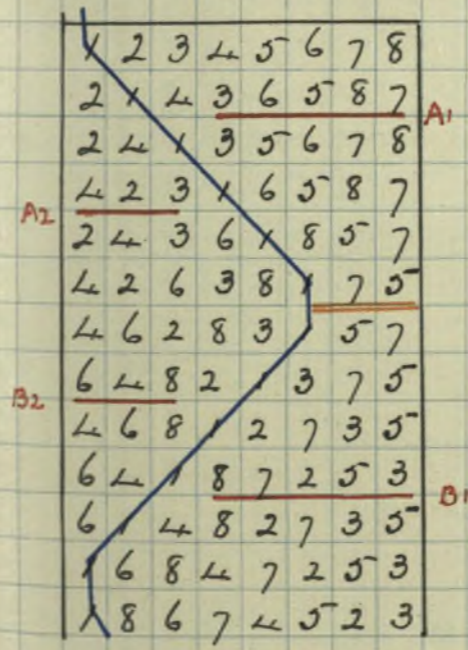 1 2 3 4 5 6 7 8
2 1 4 3 6 5 8 7 A1
2 4 1 3 5 6 7 8
A2 4 2 3 1 6 5 8 7
2 4 3 6 1 8 5 7
4 2 6 3 8 1 7 5
4 6 2 8 3 1 5 7
B2 6 4 8 2 1 3 7 5
4 6 8 1 2 7 3 5
6 4 1 8 7 2 5 3 B1
6 1 4 8 2 7 3 5
1 6 8 4 7 2 5 3
1 8 6 7 4 5 2 3